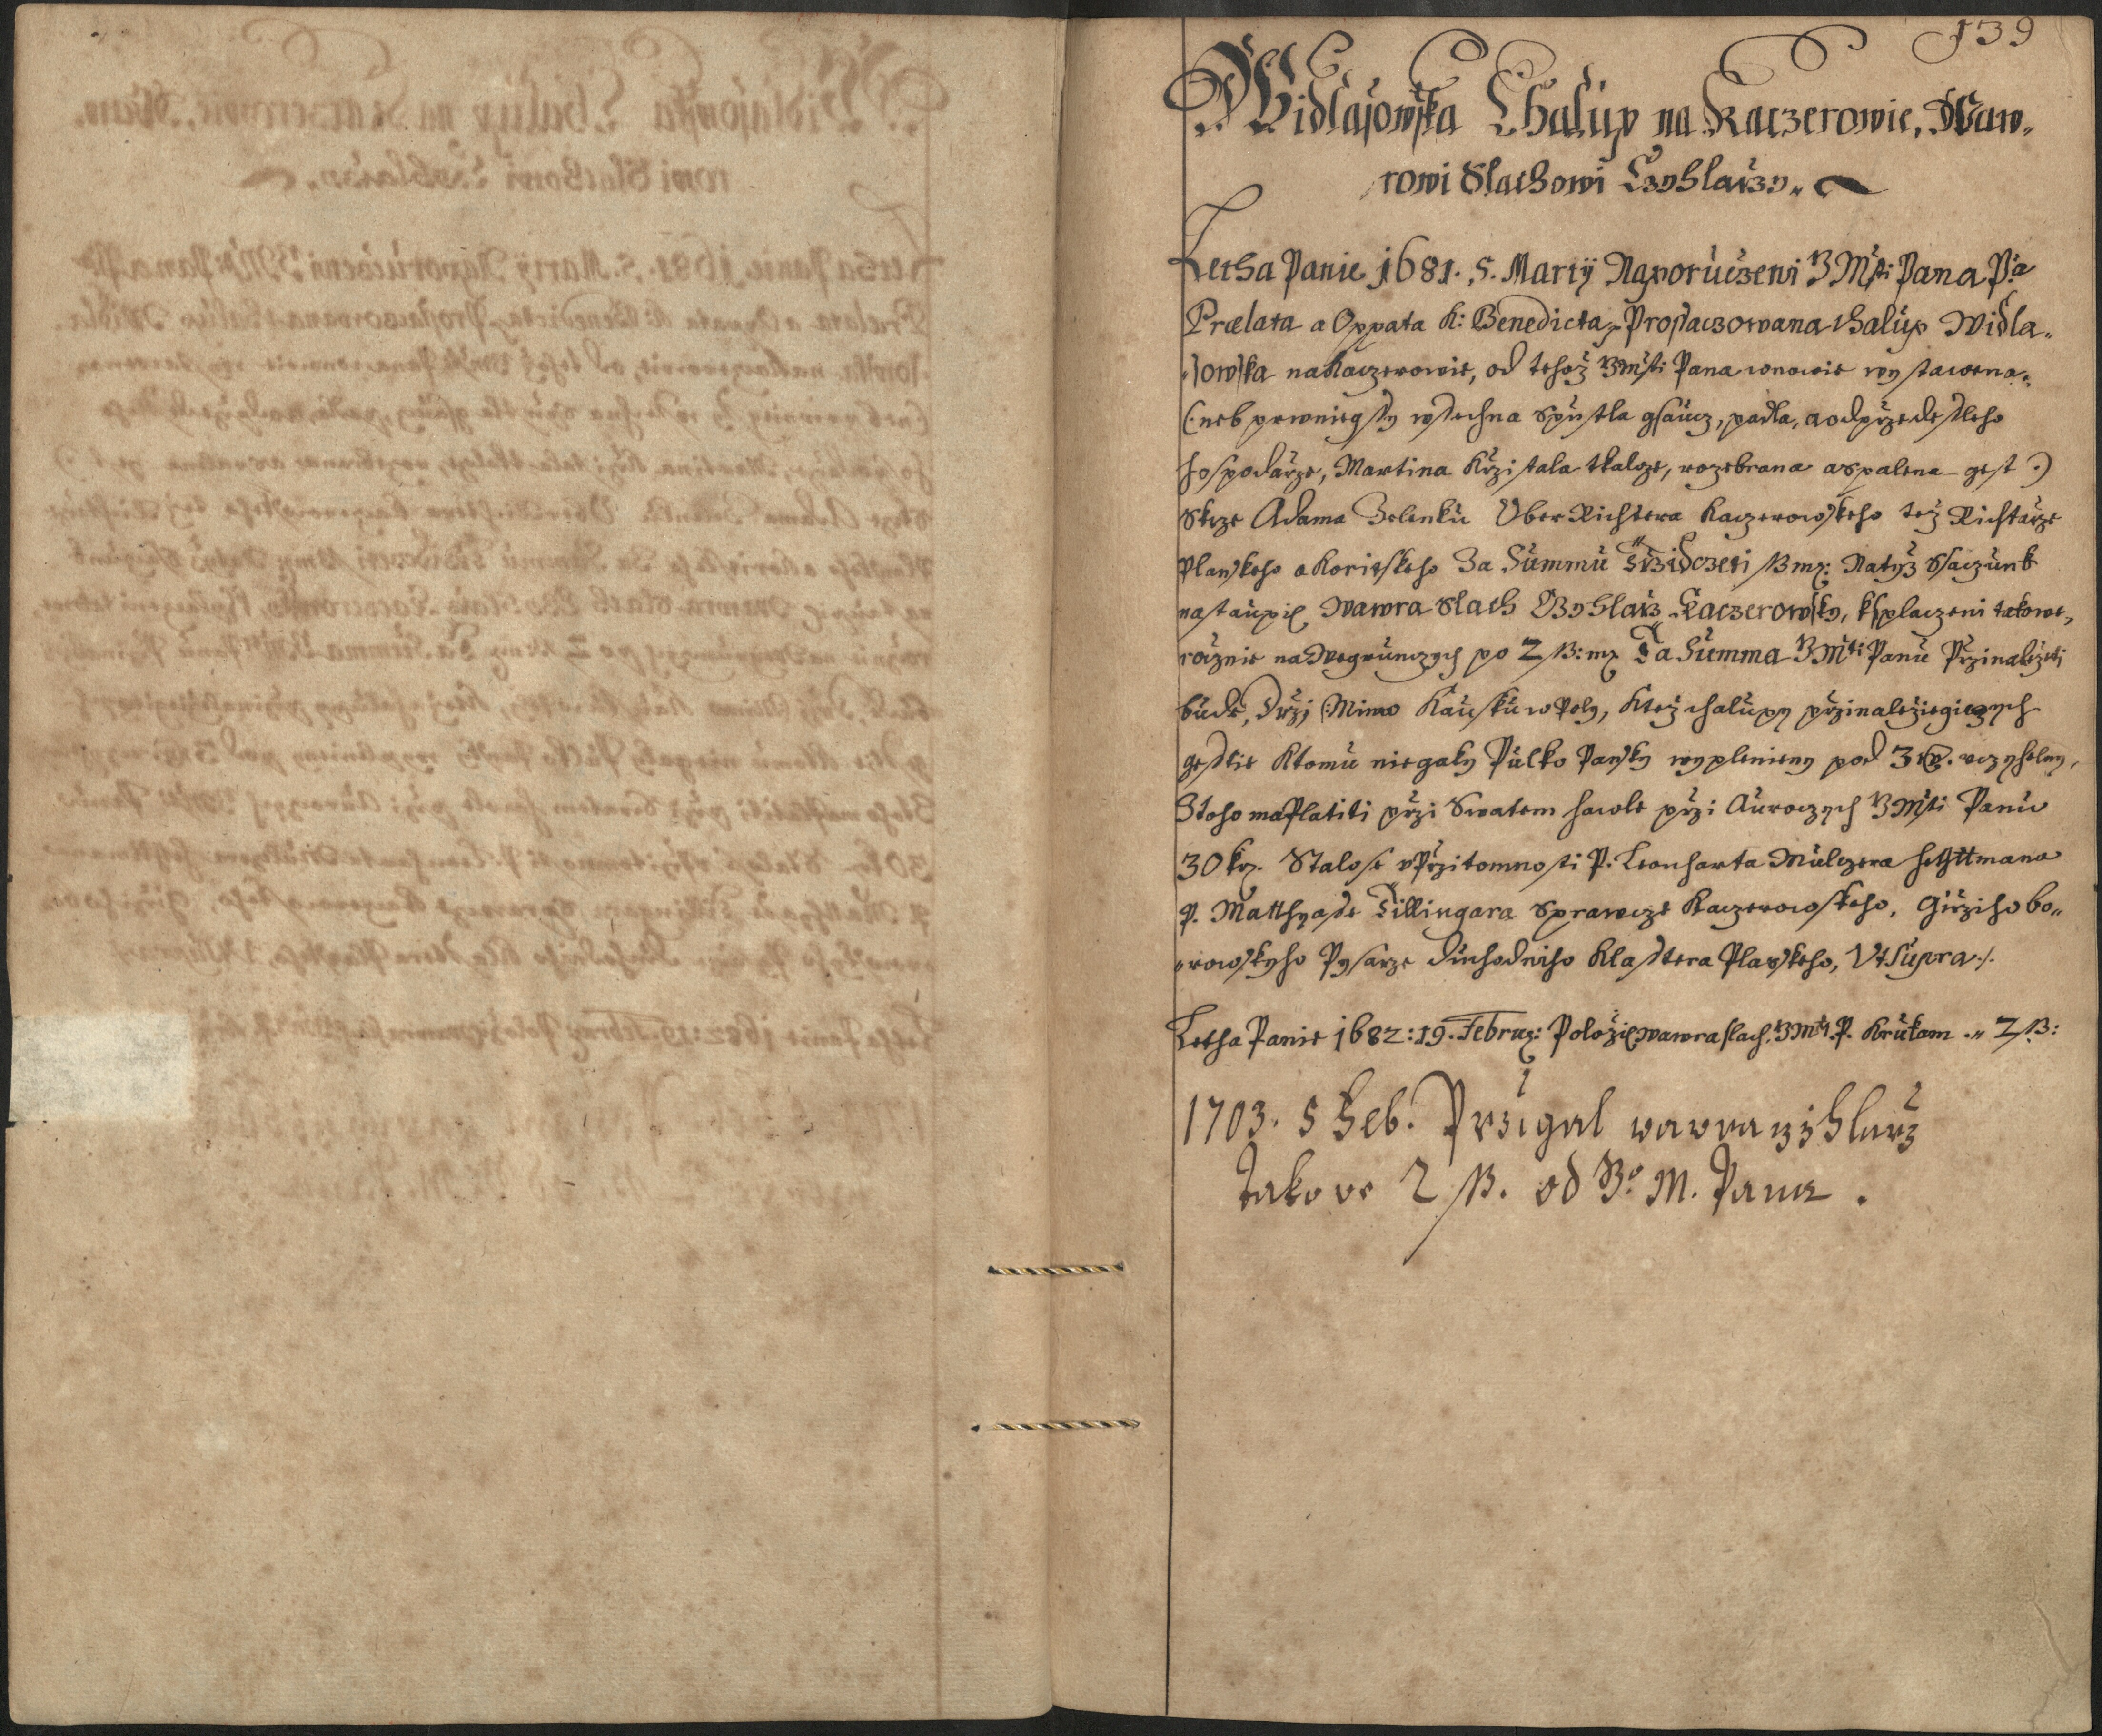 139
Widlasowska Chalup na Kaczerowie, Waw„
rowi Slachowi Czyhlarzy„
Letha Panie 1681. 5. Martÿ Naporuczeni V Mti Pana P:
Prælata a Oppata K: Benedicta, Prossaczowana chalup Widla„
„sowska na Kaczerowie, od tehoz V Mti Pana wnowie wystawena„
(: neb prwniegssy wssechna spustla gsaucz, padla, a odprzedessleho
hospodarze, Martina Krzistala tkalcze, rozebrana a spalena gest :)
Skrze Adama Zelenku Ober Richtera Kaczerowskeho tez Richtarze
Planskeho a Koriskeho Za Summu Trzidczeti ß mz: Natyz Ssaczunk
nastaupil Wawra Slach Czyhlarz Kaczerowsky, k splaczeni takowe,
rocznie na Weyrunczych po 2 ß: mz Ta Summa V Mti Panu Przinalezeti
bude, Drzi Mimo Kausku w Poly, k tez chalupy przinaleziegiczych
gesstie K tomu niegaky Pulko Pansky wyplenieny pod 3 wiczyhelny,
Z toho ma Platiti przi Swatem hawle przi Auroczych V Mti Panu
30 kr. Stalo se w Przitomnosti P. Leonharta Mulczera heyttmana
P. Matthyasse Tillingara Sprawcze Kaczerowskeho, Girziho bo„
„rowskyho Pysarze Duchodniho Klasstera Plaskeho, Vt Supra ./.
Letha Panie 1682: 19. Februar: Polozil Wawra Slach. V Mti. P. Krukam „ 2 ß:
1703. 5 Feb. Przigal wawra czihlarz
Takove 2 ß. od V. M. Pana .